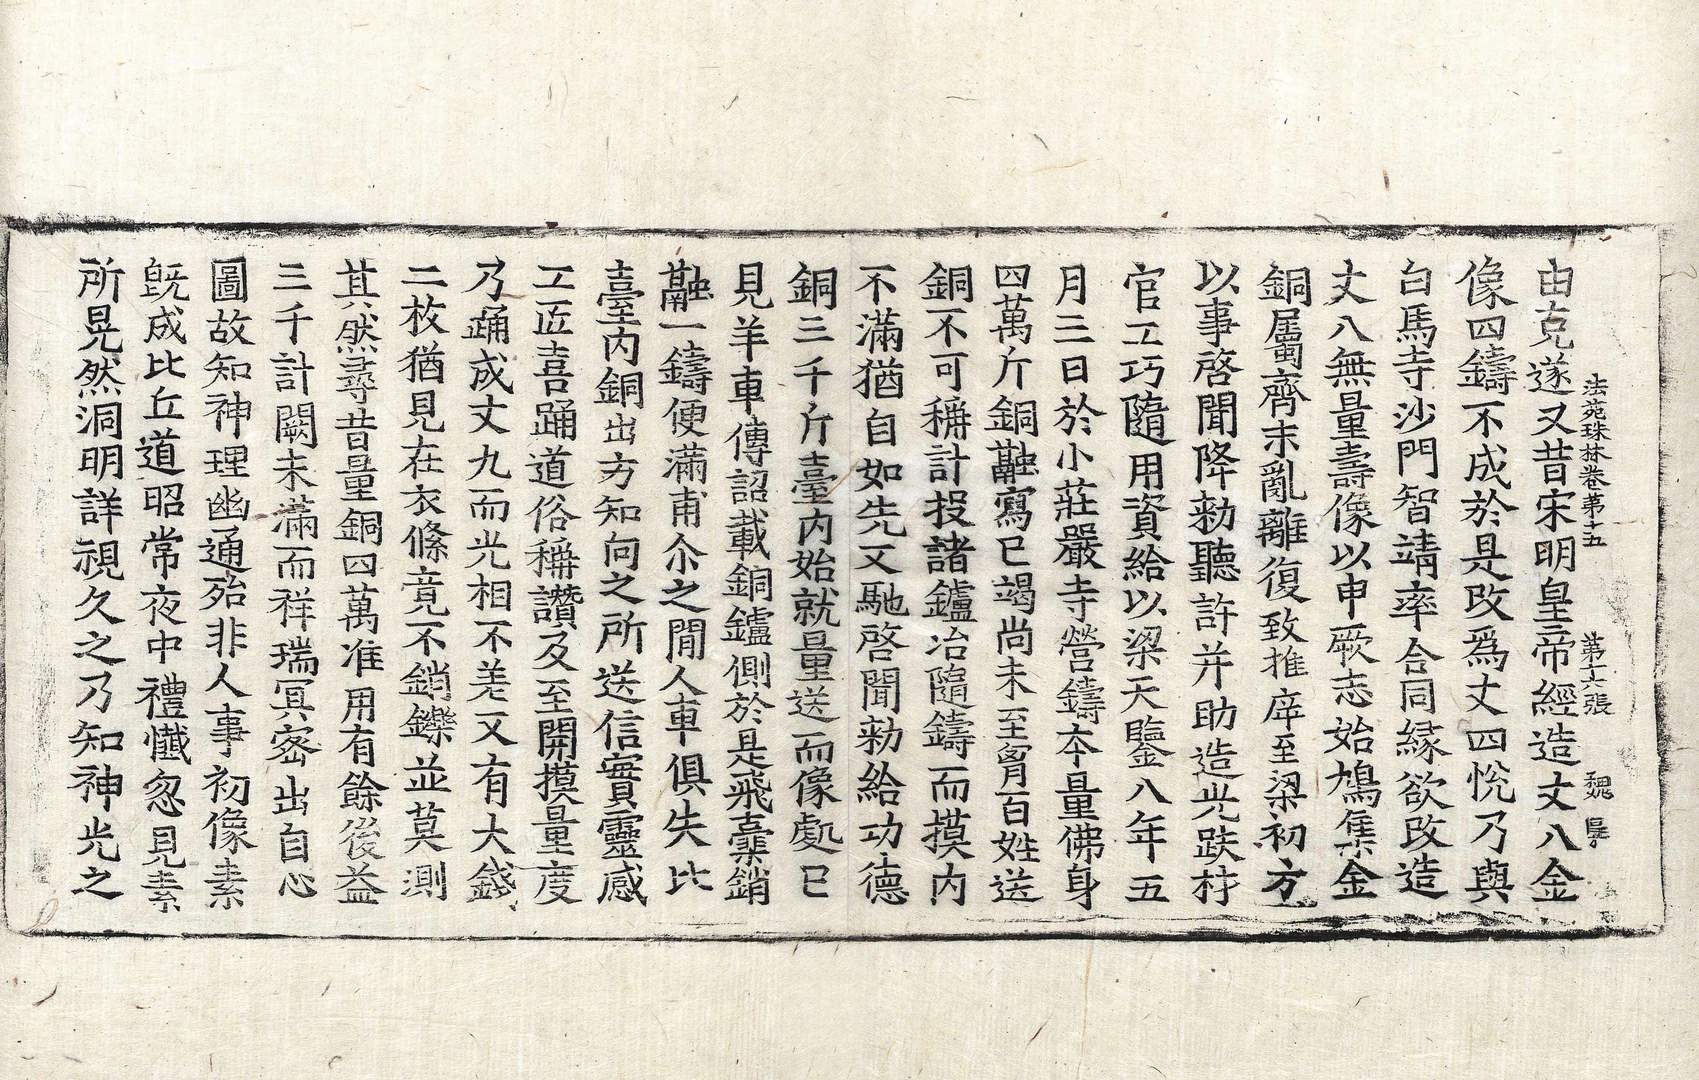 法苑珠林卷第十五　第十六張　魏
由克遂又昔宋明皇帝經造丈八金
像四鑄不成於是改爲丈四悅乃與
白馬寺沙門智靖率合同緣欲改造
丈八無量壽像以申厥志始鳩集金
銅屬齊末亂離復致推㡿至梁初方
以事啓聞降勑聽許并助造光趺材
官工巧隨用資給以梁天監八年五
月三日於小莊嚴寺營鑄夲量佛身
四萬斤銅融寫已竭尚未至胷百姓送
銅不可稱計投諸鑪冶隨鑄而摸內
不滿猶自如先又馳啓聞勑給功德
銅三千斤臺內始就量送而像處已
見羊車傳詔載銅鑪側於是飛橐銷
融一鑄便滿甫尒之間人車俱失比
臺內銅出方知向之所送信實靈感
工匠喜踊道俗稱讚及至開摸量度
乃踊成丈九而光相不差又有大錢
二枚猶見在衣絛竟不銷鑠並莫測
其然尋昔量銅四萬准用有餘後益
三千計闕未滿而祥瑞冥密出自心
圖故知神理幽通殆非人事初像素
旣成比丘道昭常夜中禮懺忽見素
所晃然洞明詳視久之乃知神光之